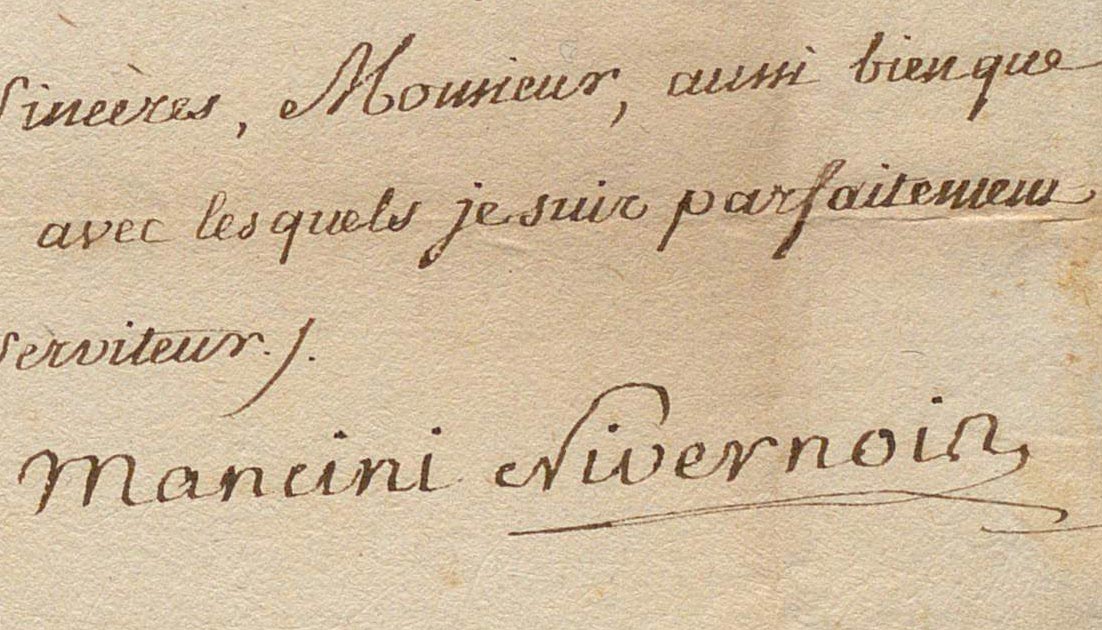 sincères, Monsieur, aussi bien que
avec lesquels je suis parfaitement
serviteur./.
Mancini Nivernois